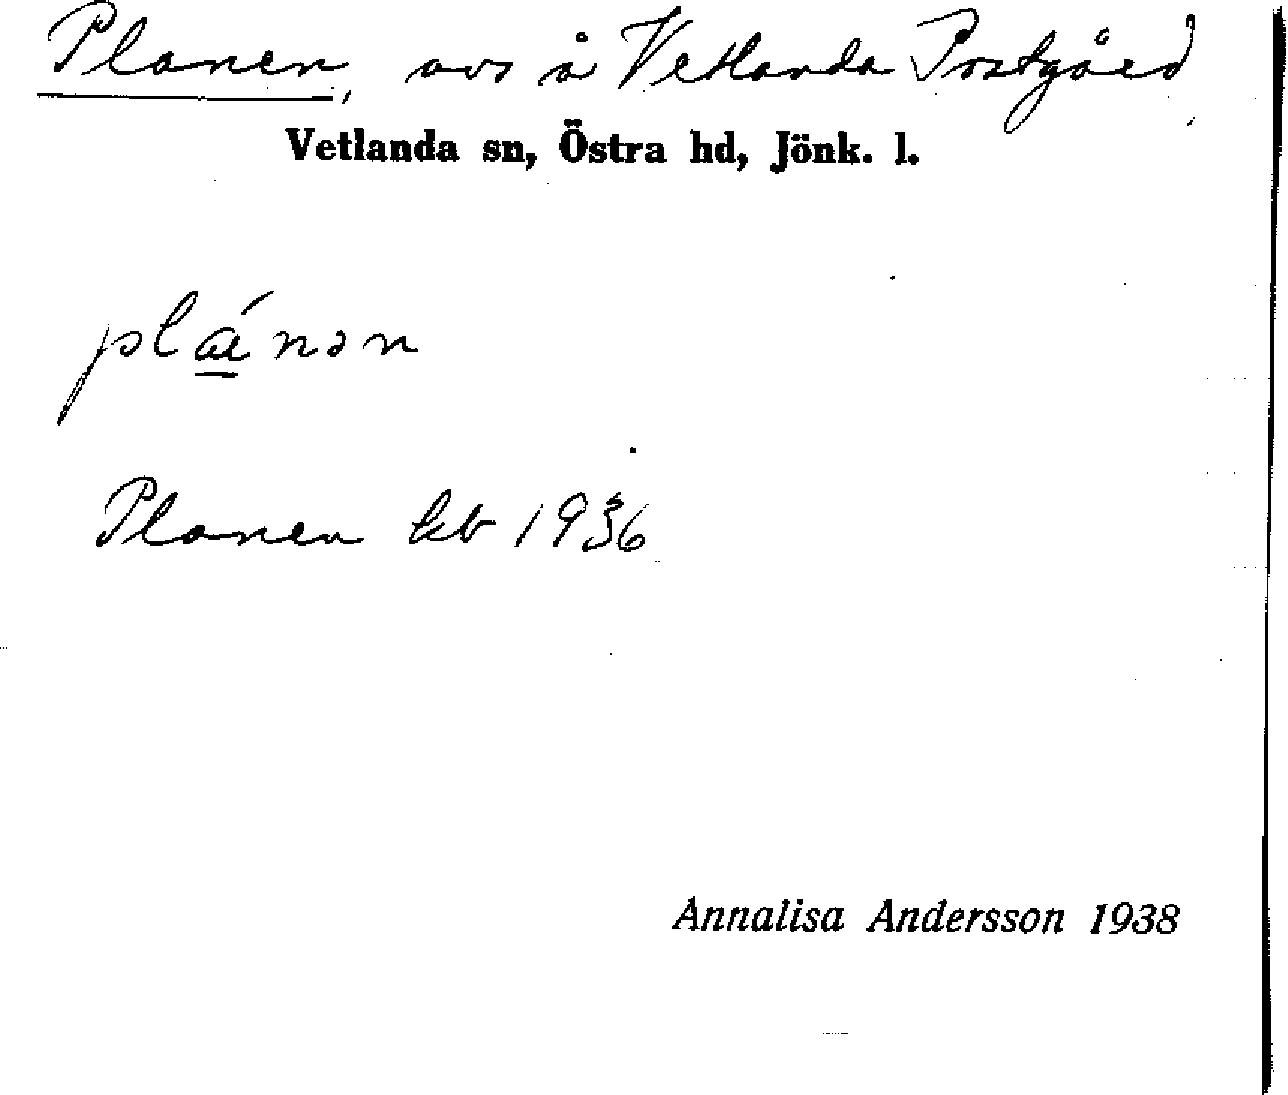 Planen, avs å Vetlanda Prostgård
Vetlanda sn, Östra hd, Jönk. l.
plánən
Planen kb 1936
Annalisa Andersson 1938